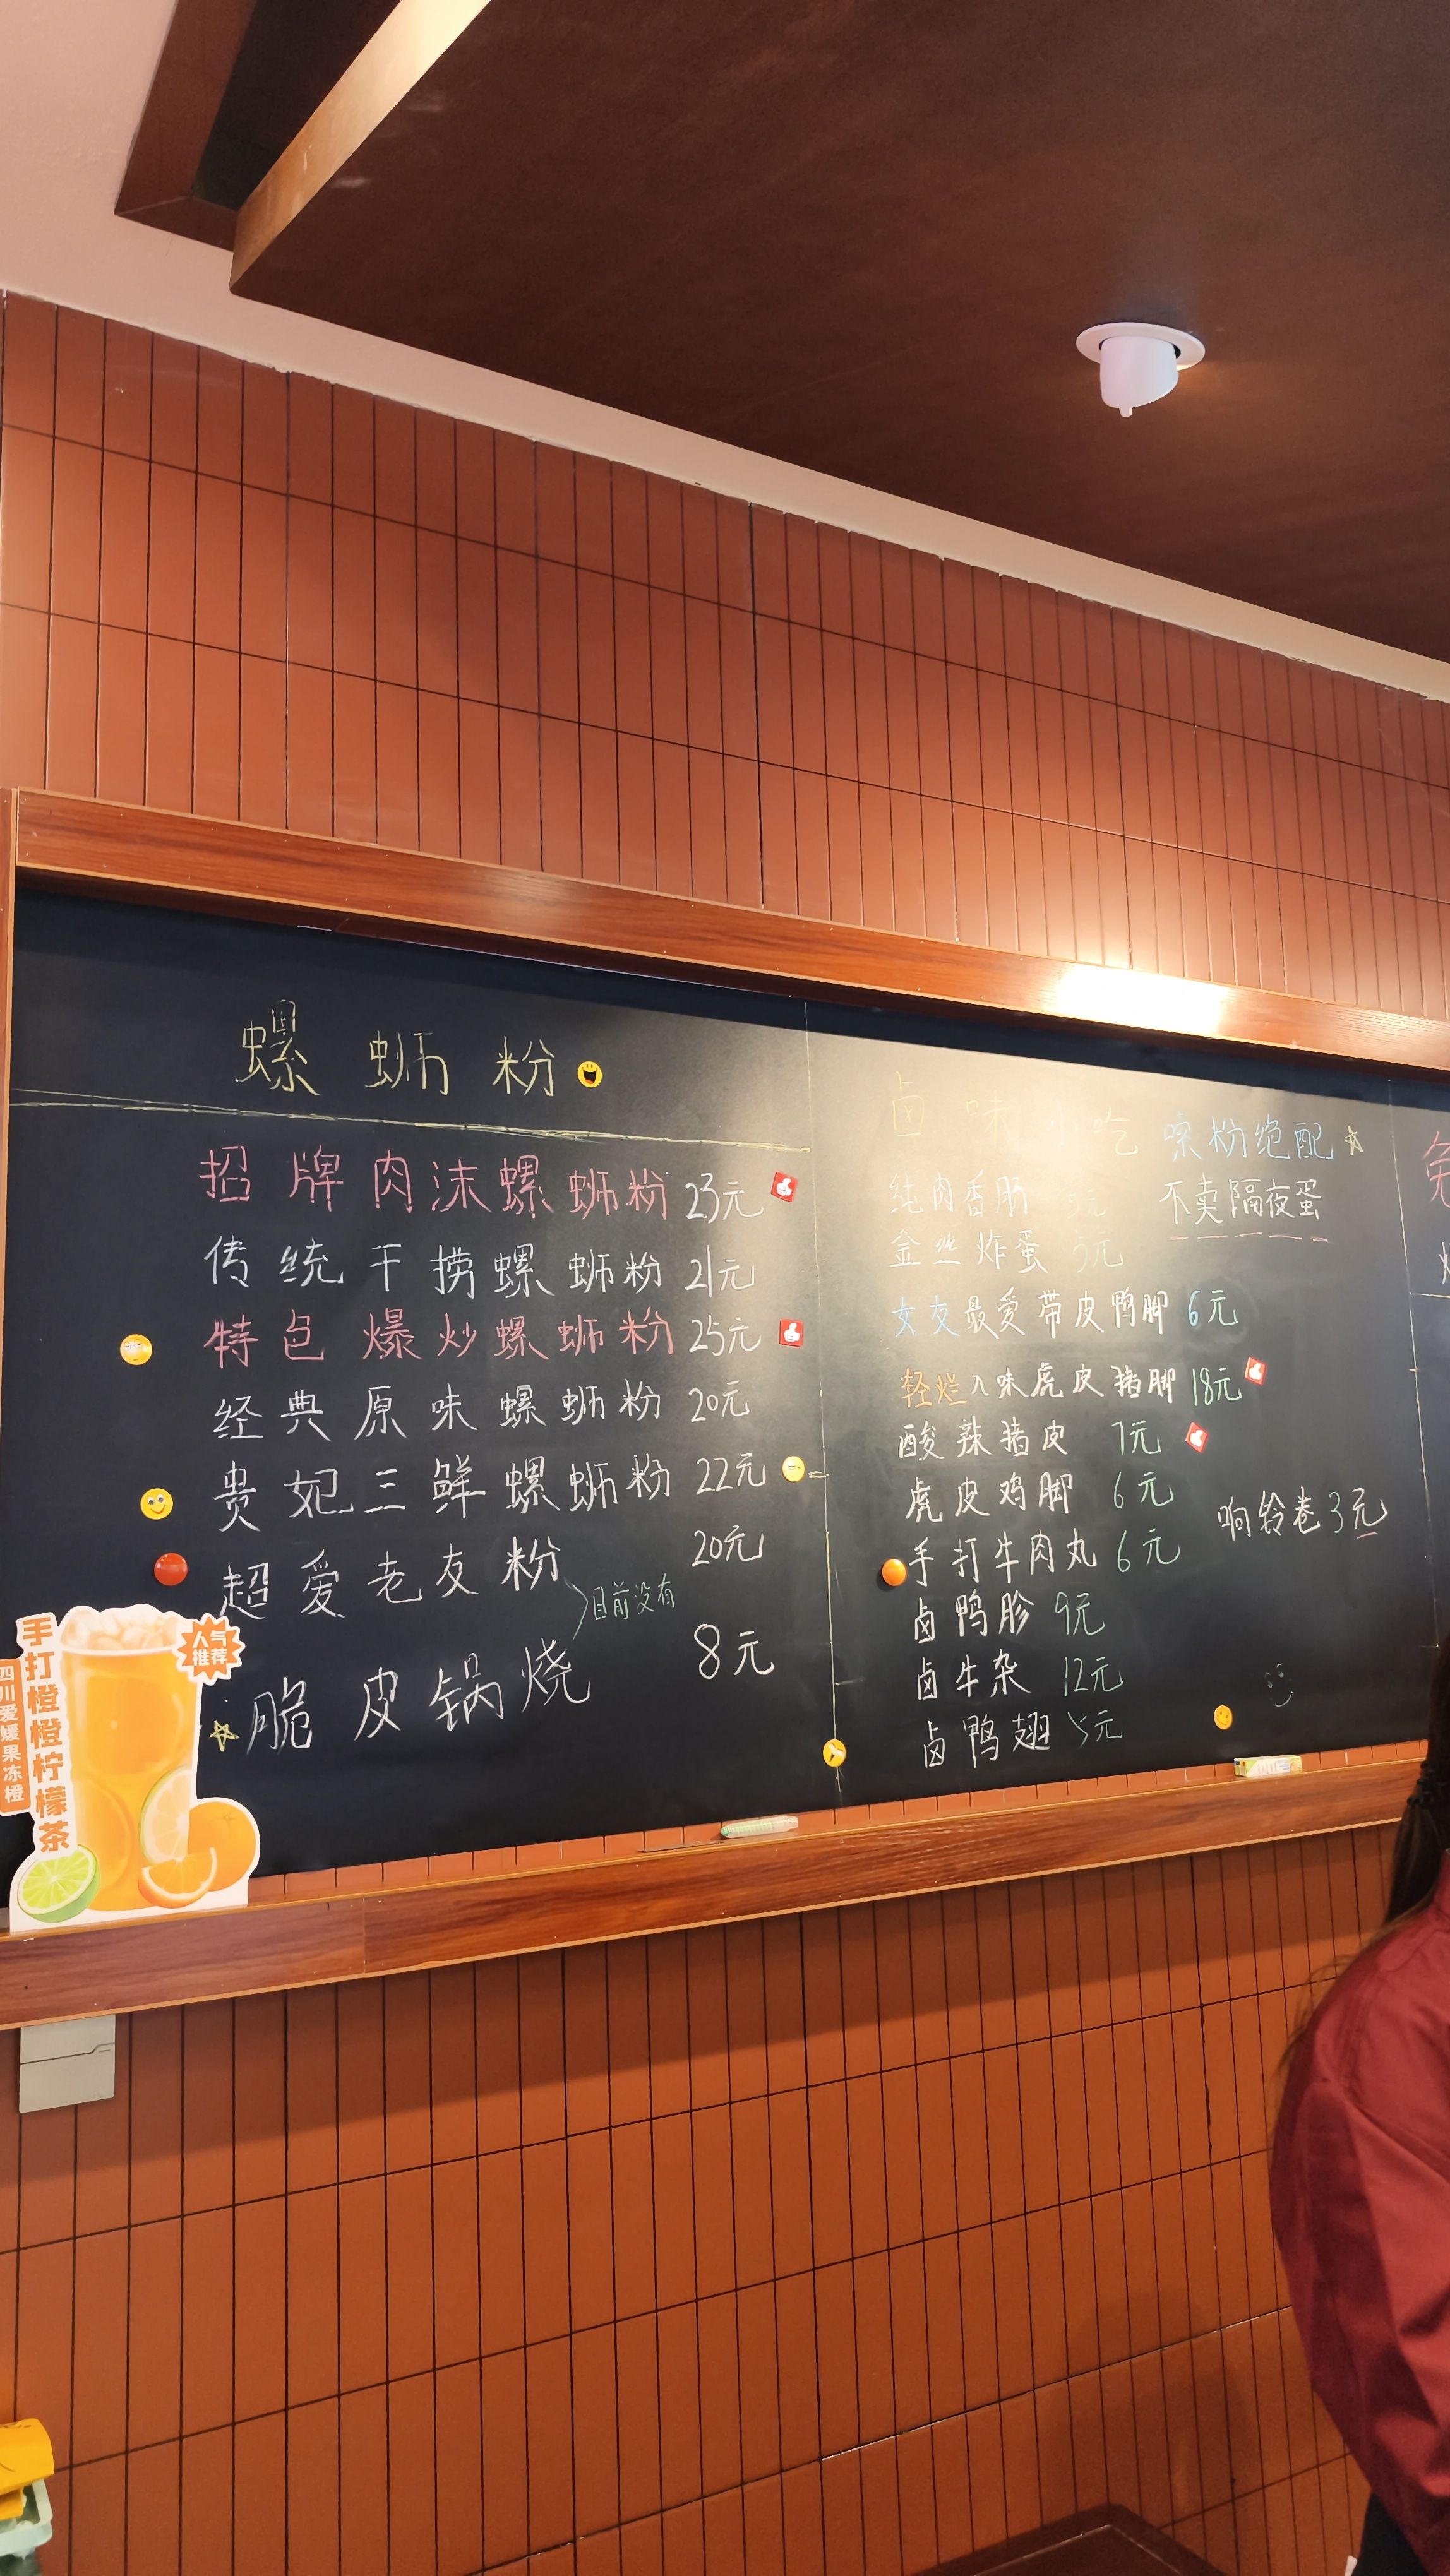 螺蛳粉
招牌肉沫螺蛳粉 23元
传统干捞螺蛳粉 21元
特色爆炒螺蛳粉 25元
经典原味螺蛳粉 20元
贵妃三鲜螺蛳粉 22元
超爱老友粉 20元
目前没有
脆皮锅烧 8元
卤味小吃 嗦粉绝配
纯肉香肠 元 不卖隔夜蛋
金丝炸蛋 5元
女友最爱带皮鸭脚 6元
轻烂入味虎皮猪脚 18元
酸辣猪皮 7元
虎皮鸡脚 6元
响铃卷3元
手打牛肉丸 6元
卤鸭胗 9元
卤牛杂 12元
卤鸭翅 5元
手打橙橙柠檬茶
四川爱媛果冻橙
人气
推荐